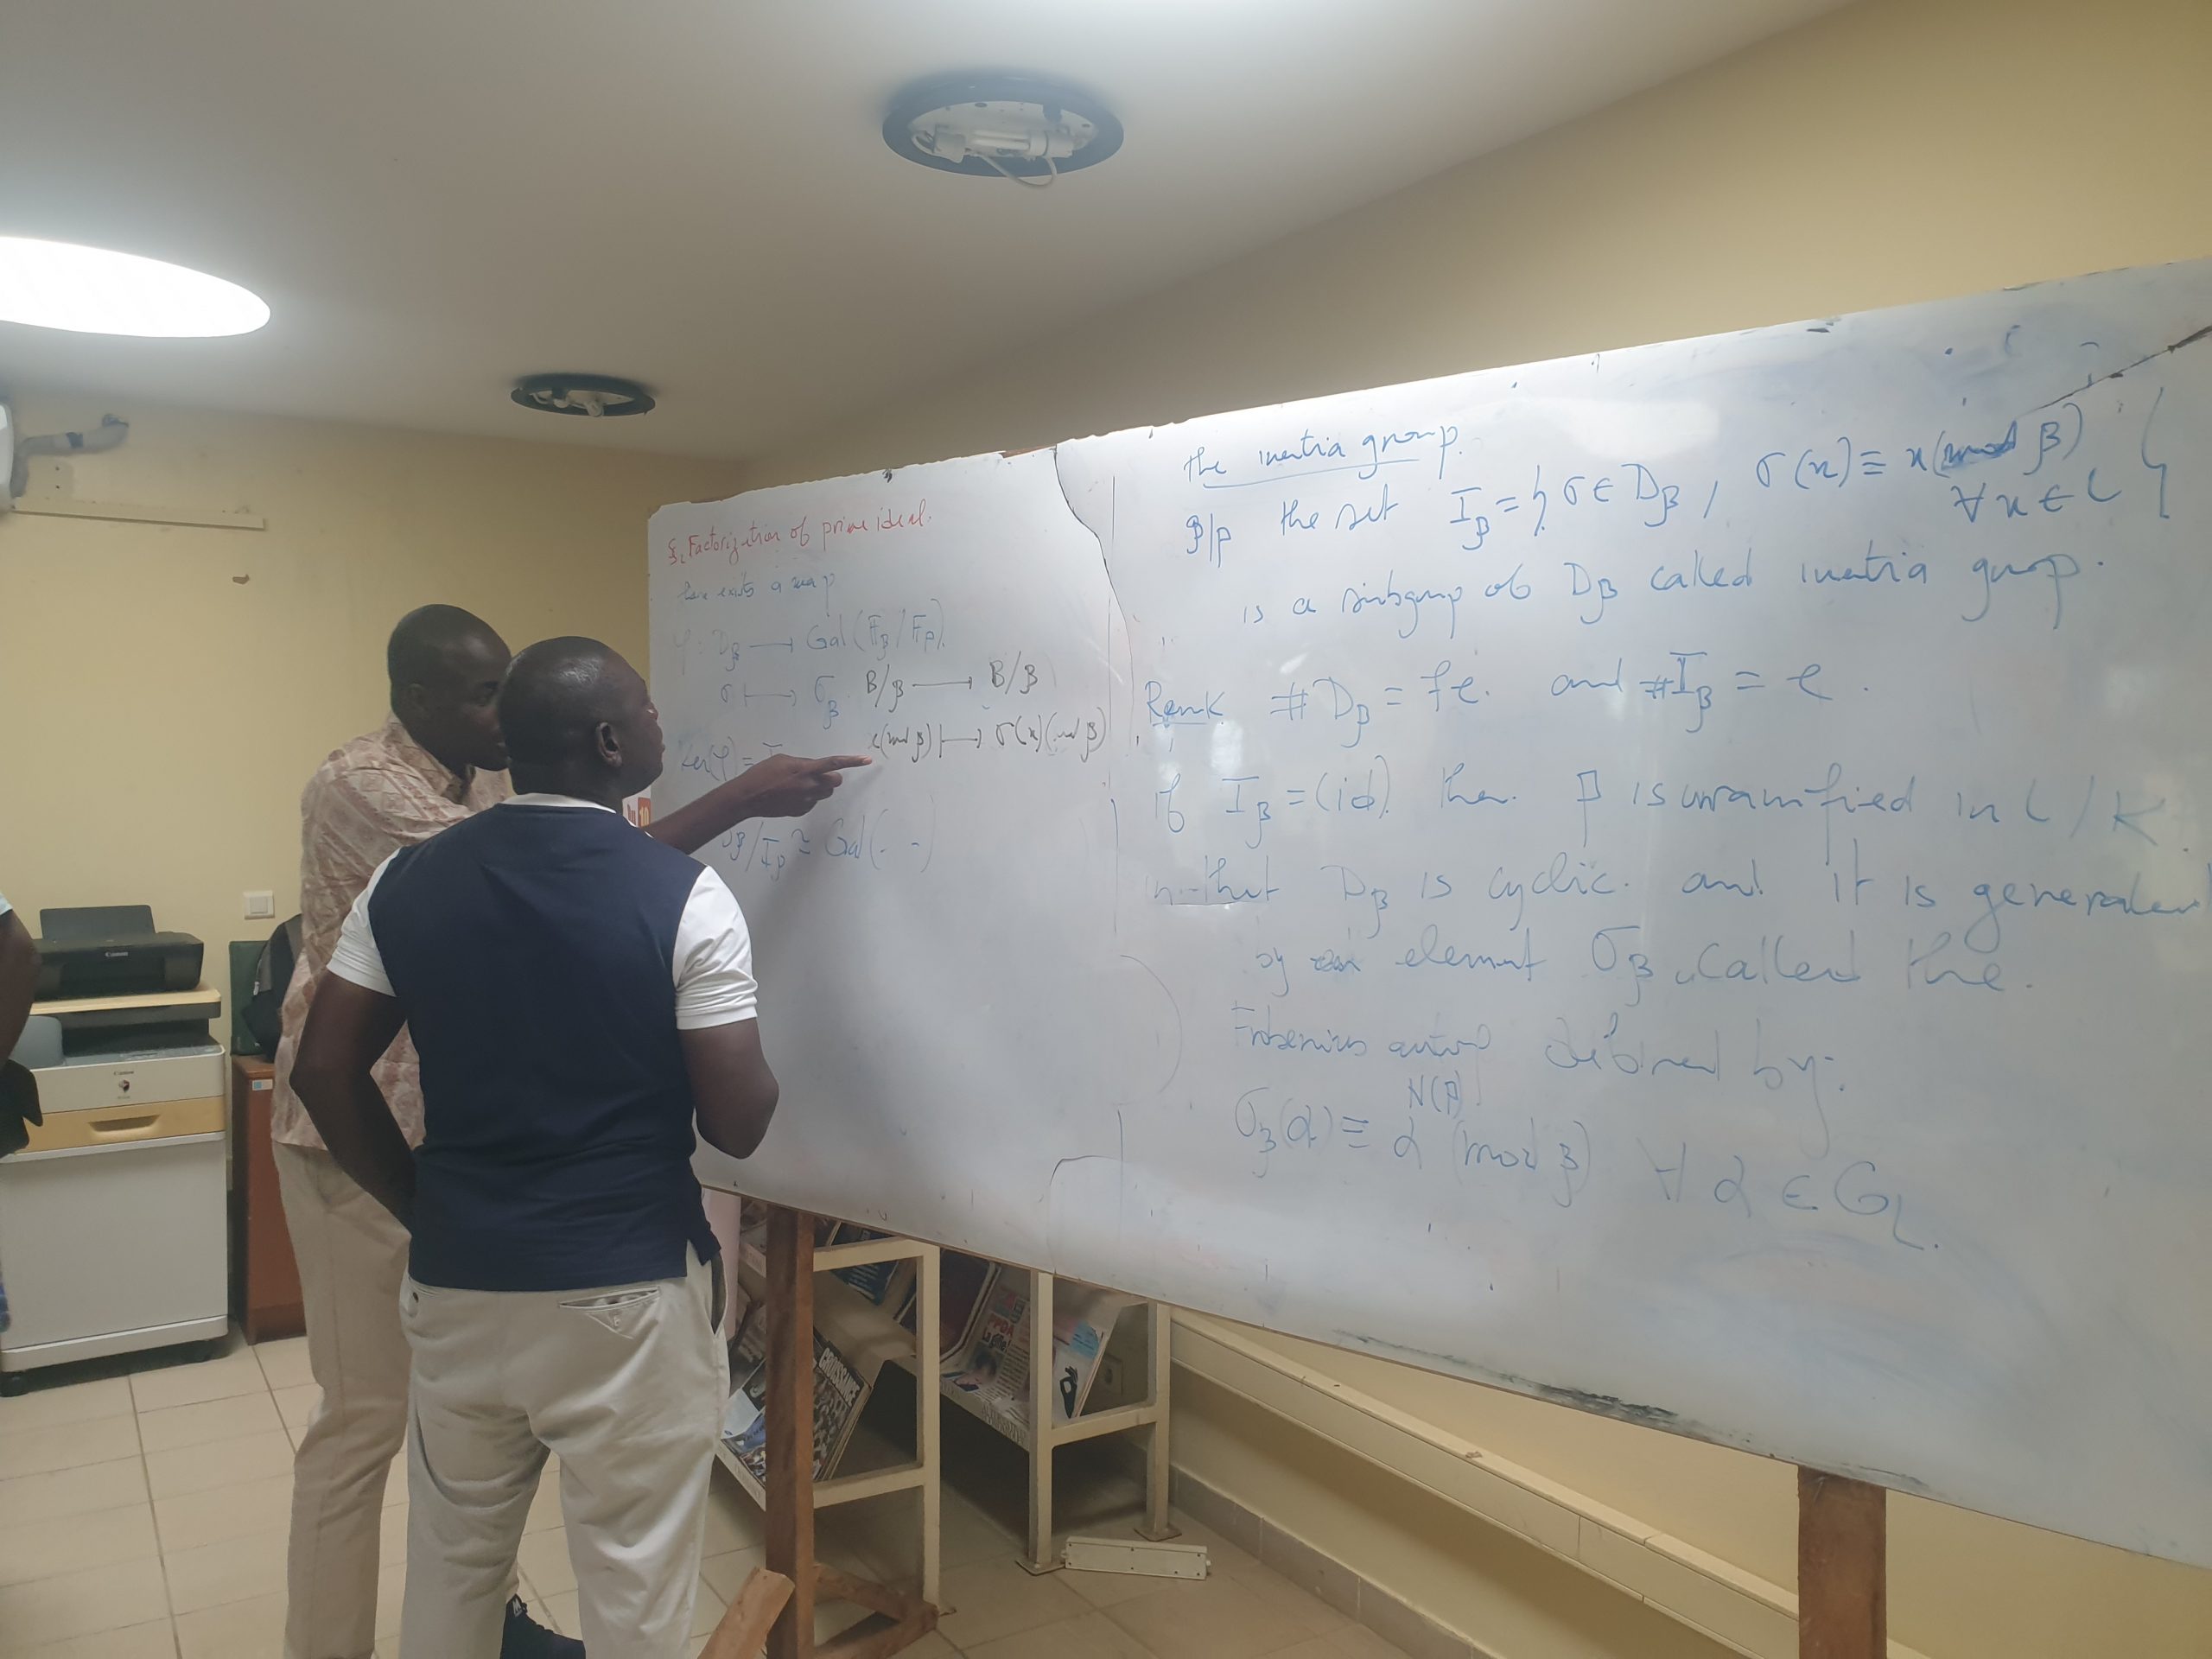 §. Factorization of prime ideal.
there exists a map
φ: D_β ⟶ Gal(F_β/F_p)
σ ⟼ σ_β : B/β ⟶ B/β
x(mod β) ⟼ σ(x)(mod β)
Ker(φ) = I
D_β/I_β ≃ Gal(- -)
the inertia group.
β|p the set I_β = { σ ∈ D_β, σ(x) ≡ x(mod β)
∀ x ∈ L }
is a subgroup of D_β called inertia group.
Remk # D_β = fe. and #I_β = e.
If I_β = (id) then. p is unramified in L/K
In that D_β is cyclic. and it is generated
by an element σ_β called the.
Frobenius autom defined by:
σ_β(α) ≡ α^N(p) (mod β) ∀ α ∈ O_L.
Canon
Canon
CROISSANCE